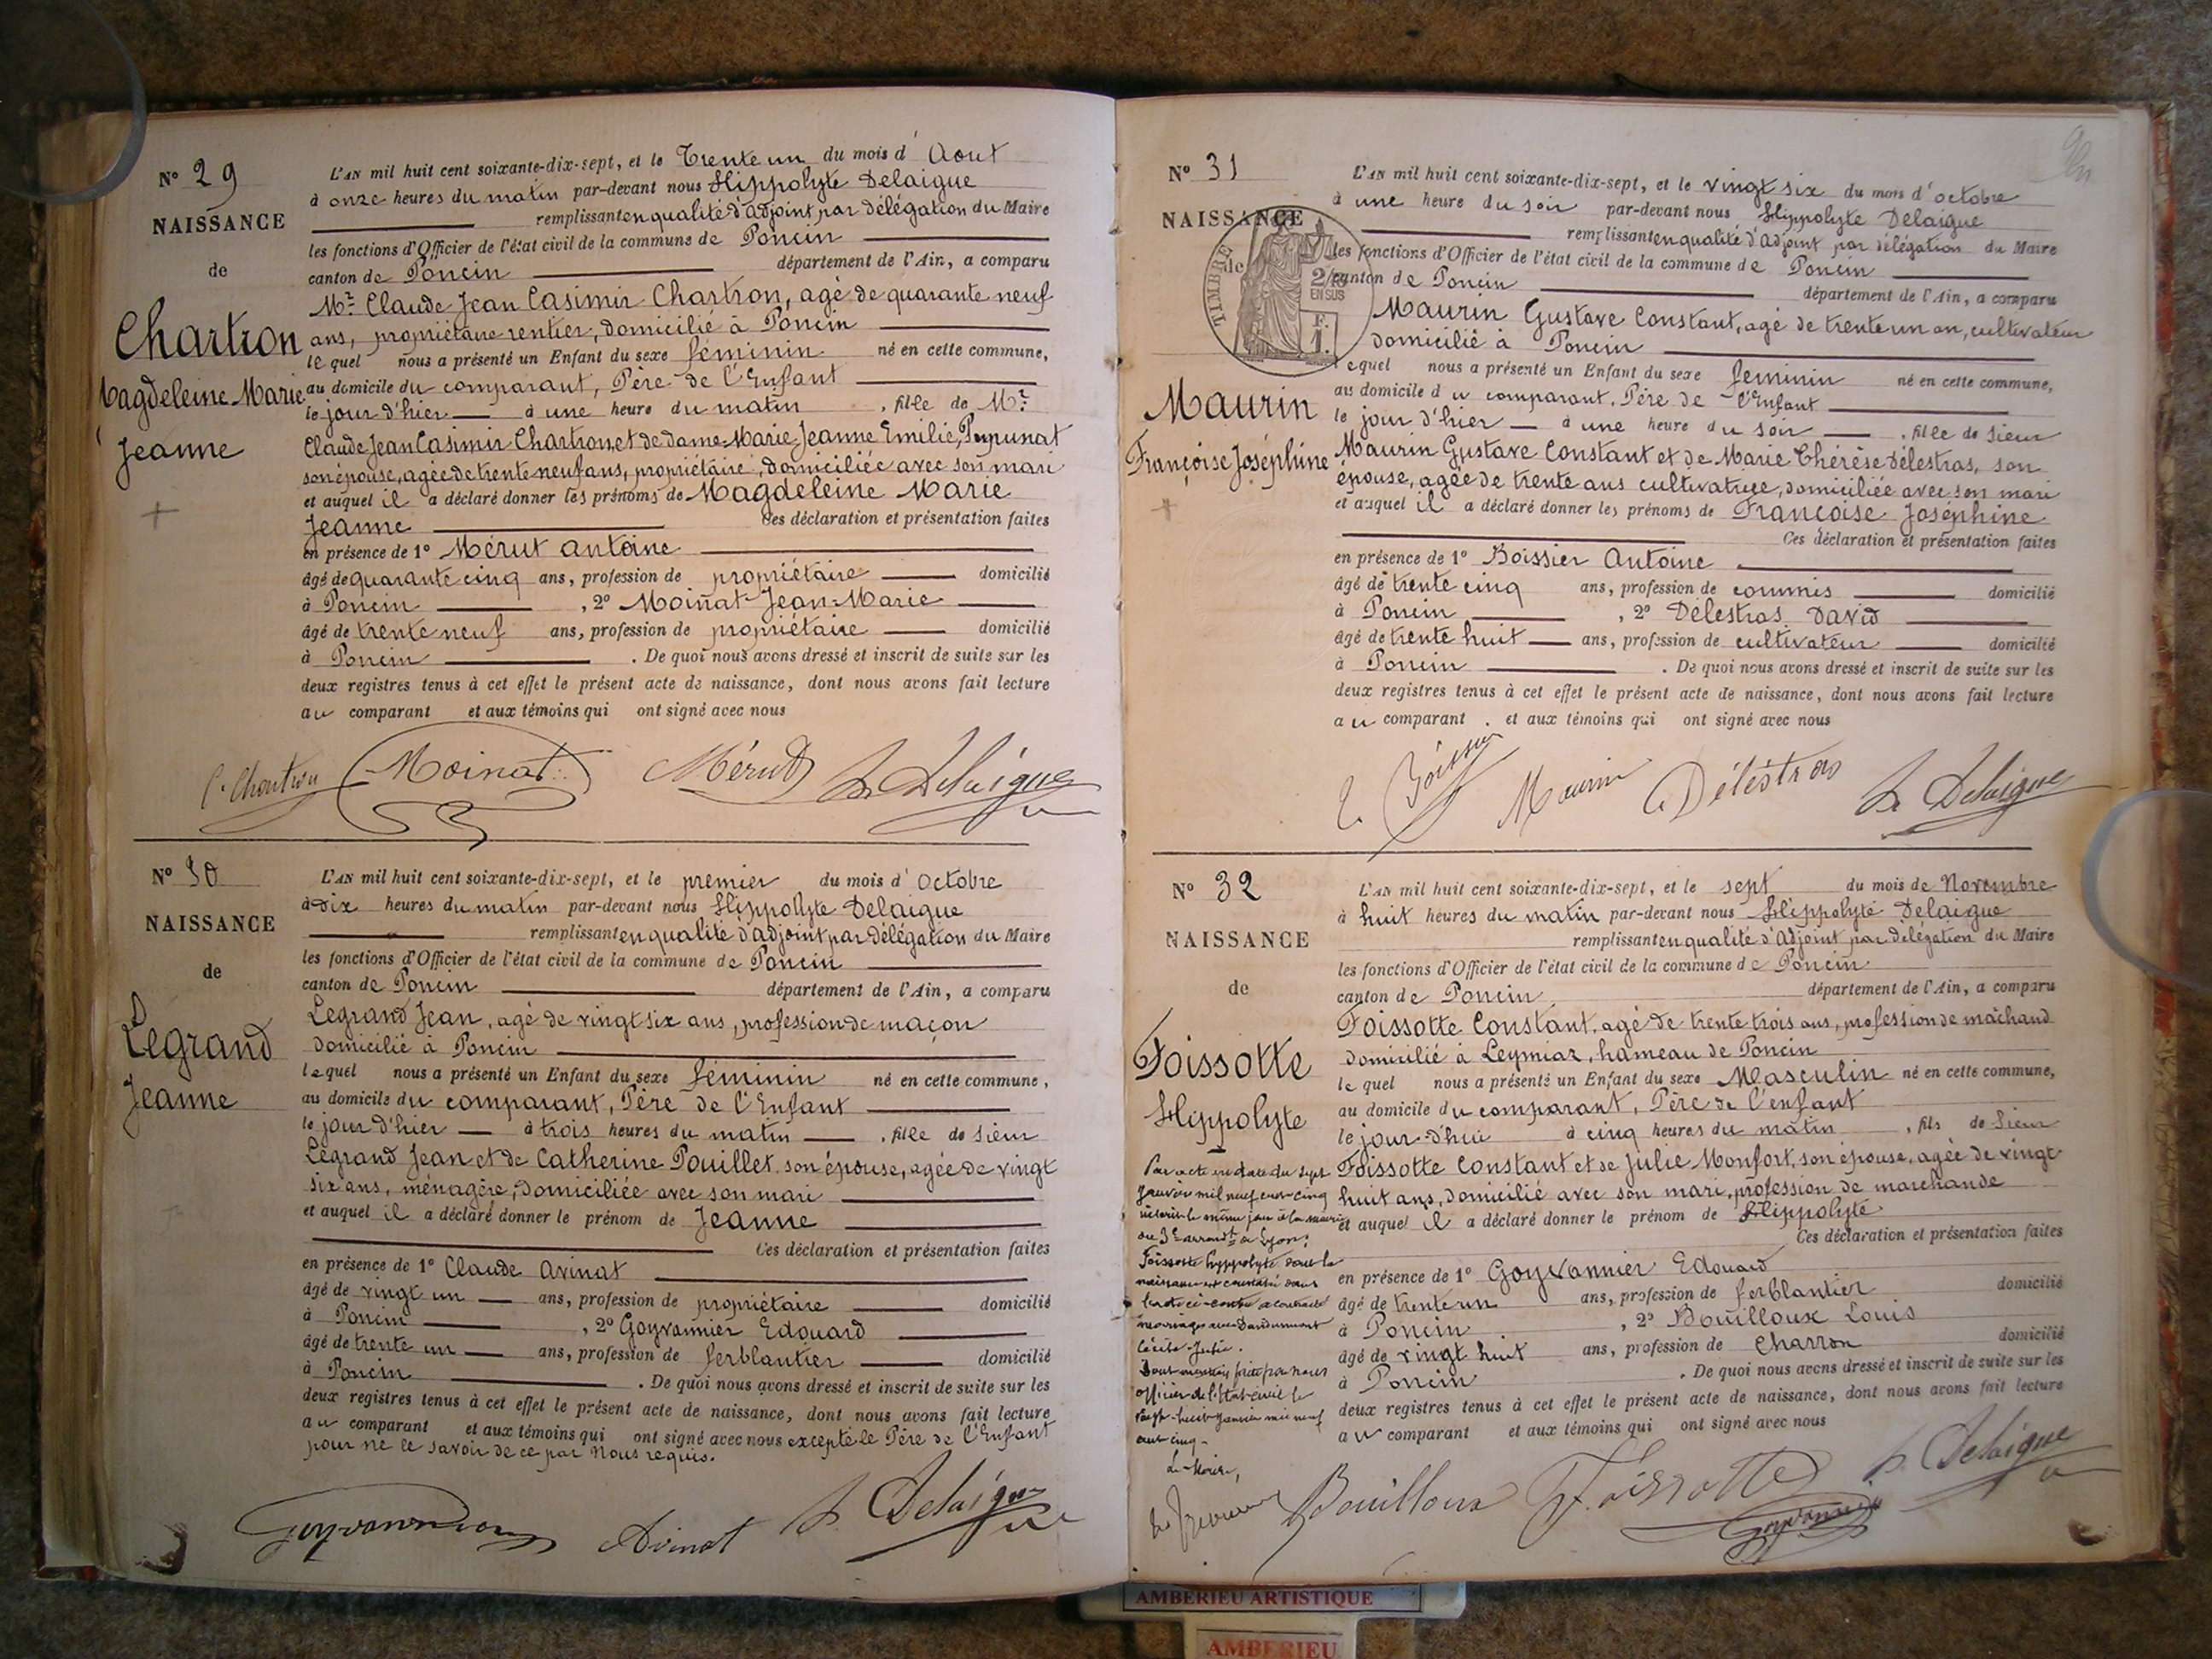 N° 29
NAISSANCE
de
Chartron
Magdeleine Marie
Jeanne
L'AN mil huit cent soixante-dix-sept, et le Trente un du mois d' Aout
à onze heures du matin par-devant nous Hippolyte Delaigue
remplissant en qualité d'adjoint par délégation du Maire
les fonctions d'Officier de l'état civil de la commune de Poncin
canton de Poncin département de l'Ain, a comparu
Mr. Claude Jean Casimir Chartron, agé de quarante neuf
ans, propriétaire rentier, domicilié à Poncin
lequel nous a présenté un Enfant du sexe féminin né en cette commune,
au domicile du comparant, Père de l'Enfant
le jour d'hier à une heure du matin, fille de Mr.
Claude Jean Casimir Chartron et de dame Marie Jeanne Emilie
son épouse, agée de trente neuf ans, propriétaire, domiciliée avec son mari
et auquel il a déclaré donner les prénoms de Magdeleine Marie
Jeanne Ces déclaration et présentation faites
en présence de 1° Mérut Antoine
âgé de quarante cinq ans, profession de propriétaire domicilié
à Poncin, 2° Moinat Jean-Marie
âgé de trente neuf ans, profession de propriétaire domicilié
à Poncin. De quoi nous avons dressé et inscrit de suite sur les
deux registres tenus à cet effet le présent acte de naissance, dont nous avons fait lecture
au comparant et aux témoins qui ont signé avec nous
C. Chartron Moinat Mérut H. Delaigue
N° 30
NAISSANCE
de
Legrand
Jeanne
L'AN mil huit cent soixante-dix-sept, et le premier du mois d' Octobre
à dix heures du matin par-devant nous Hippolyte Delaigue
remplissant en qualité d'adjoint par délégation du Maire
les fonctions d'Officier de l'état civil de la commune de Poncin
canton de Poncin département de l'Ain, a comparu
Legrand Jean, agé de vingt six ans, profession de maçon
domicilié à Poncin
lequel nous a présenté un Enfant du sexe féminin né en cette commune,
au domicile du comparant, Père de l'Enfant
le jour d'hier à trois heures du matin, fille de Sieur
Legrand Jean et de Catherine Pouillet son épouse, agée de vingt
six ans, ménagère, domiciliée avec son mari
et auquel il a déclaré donner le prénom de Jeanne
Ces déclaration et présentation faites
en présence de 1° Claude Avinat
âgé de vingt un ans, profession de propriétaire domicilié
à Poncin, 2° Goyvannier Edouard
âgé de trente un ans, profession de ferblantier domicilié
à Poncin. De quoi nous avons dressé et inscrit de suite sur les
deux registres tenus à cet effet le présent acte de naissance, dont nous avons fait lecture
au comparant et aux témoins qui ont signé avec nous excepté le Père de l'Enfant
pour ne le savoir de ce par Nous requis.
Goyvannier Avinat H. Delaigue
N° 31
NAISSANCE
de
TIMBRE
2/10
EN SUS
F.
1.
Maurin
Françoise Joséphine
L'AN mil huit cent soixante-dix-sept, et le vingt six du mois d' octobre
à une heure du soir par-devant nous Hippolyte Delaigue
remplissant en qualité d'adjoint par délégation du Maire
les fonctions d'Officier de l'état civil de la commune de Poncin
canton de Poncin département de l'Ain, a comparu
Maurin Gustave Constant, agé de trente un an, cultivateur
domicilié à Poncin
lequel nous a présenté un Enfant du sexe féminin né en cette commune,
au domicile du comparant, Père de l'Enfant
le jour d'hier à une heure du soir, fille de Sieur
Maurin Gustave Constant et de Marie Thérèse délestras, son
épouse, agée de trente ans cultivatrice, domiciliée avec son mari
et auquel il a déclaré donner les prénoms de Françoise Joséphine
Ces déclaration et présentation faites
en présence de 1° Boissier Antoine
âgé de trente cinq ans, profession de commis domicilié
à Poncin, 2° Délestras David
âgé de trente huit ans, profession de cultivateur domicilié
à Poncin. De quoi nous avons dressé et inscrit de suite sur les
deux registres tenus à cet effet le présent acte de naissance, dont nous avons fait lecture
au comparant. et aux témoins qui ont signé avec nous
Boissier Maurin Délestras H. Delaigue
N° 32
NAISSANCE
de
Foissotte
Hippolyte
Par acte en date du sept
Janvier mil neuf cent cinq
du 3e arrondt de Lyon,
Foissotte Hyppolyte dont la
naissance est constatée dans
l'acte ci-contre a contracté
mariage avec
Cécile Julie.
Dont mention faite par nous
officier de l'état civil le
vingt-huit Janvier mil neuf
cent cinq.
Le Maire,
L'AN mil huit cent soixante-dix-sept, et le sept du mois de Novembre
à huit heures du matin par-devant nous Hippolyte Delaigue
remplissant en qualité d'Adjoint par délégation du Maire
les fonctions d'Officier de l'état civil de la commune de Poncin
canton de Poncin département de l'Ain, a comparu
Foissotte Constant, agé de trente trois ans, profession de machand
domicilié à Leymiaz, hameau de Poncin
lequel nous a présenté un Enfant du sexe Masculin né en cette commune,
au domicile du comparant, Père de l'enfant
le jour d'hui à cinq heures du matin, fils de Sieur
Foissotte Constant et de Julie Monfort, son épouse, agée de vingt
huit ans, domicilié avec son mari, profession de marchande
et auquel il a déclaré donner le prénom de Hippolyte
Ces déclaration et présentation faites
en présence de 1° Goyvannier Edouard
âgé de trente un ans, profession de ferblantier domicilié
à Poncin, 2° Bouilloux Louis
âgé de vingt huit ans, profession de Charron domicilié
à Poncin. De quoi nous avons dressé et inscrit de suite sur les
deux registres tenus à cet effet le présent acte de naissance, dont nous avons fait lecture
au comparant et aux témoins qui ont signé avec nous
Bouilloux Foissotte Goyvannier H. Delaigue
AMBERIEU ARTISTIQUE
AMBERIEU